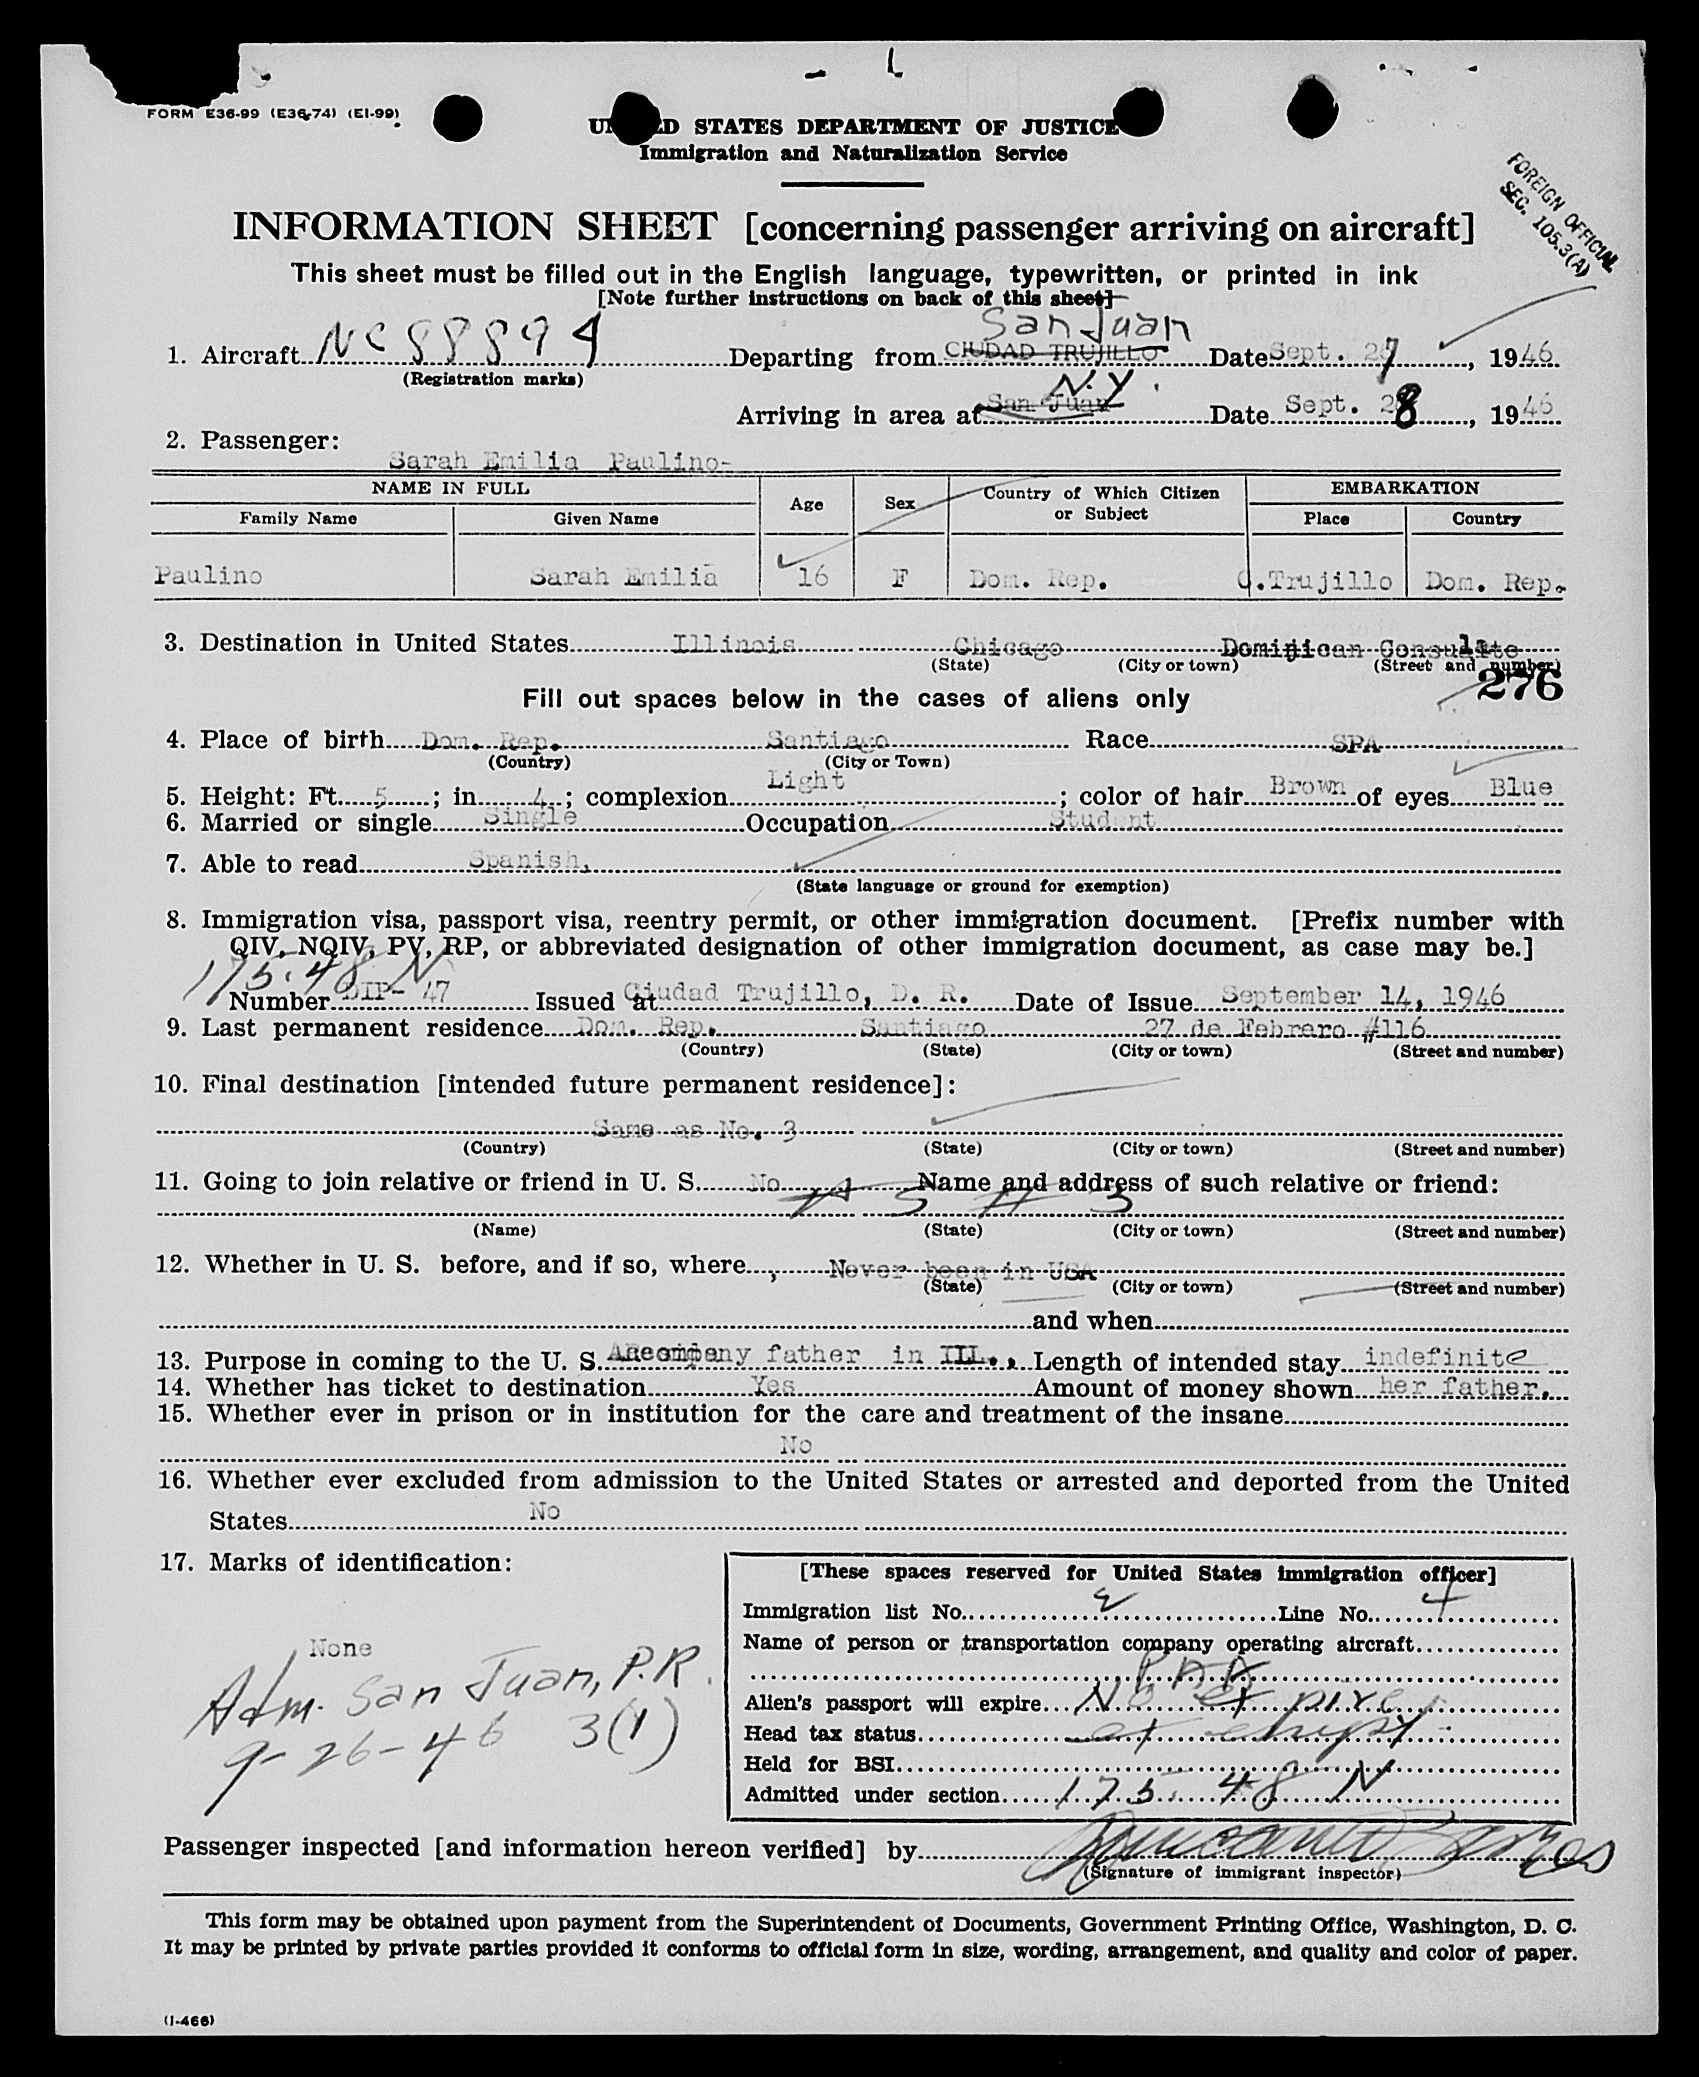 FORM E36-99 (E36-74) (EI-99)
UNITED STATES DEPARTMENT OF JUSTICE
Immigration and Naturalization Service
FOREIGN OFFICIAL
SEC. 105.3(A)
INFORMATION SHEET [concerning passenger arriving on aircraft]
This sheet must be filled out in the English language, typewritten, or printed in ink
[Note further instructions on back of this sheet]
San Juan
1. Aircraft NC 88894 Departing from CIUDAD TRUJILLO Date Sept. 27, 1946
(Registration marks)
N.Y.
Arriving in area at San Juan Date Sept. 28, 1946
2. Passenger:
Sarah Emilia Paulino-
NAME IN FULL Age Sex Country of Which Citizen or Subject EMBARKATION
Family Name Given Name Place Country
Paulino Sarah Emilia 16 F Dom. Rep. C.Trujillo Dom. Rep.
3. Destination in United States Illinois Chicago Dominican Consulate
(State) (City or town) (Street and number)
276
Fill out spaces below in the cases of aliens only
4. Place of birth Dom. Rep. Santiago Race SPA
(Country) (City or Town)
5. Height: Ft. 5; in. 4; complexion Light; color of hair Brown of eyes Blue
6. Married or single Single Occupation Student
7. Able to read Spanish,
(State language or ground for exemption)
8. Immigration visa, passport visa, reentry permit, or other immigration document. [Prefix number with
QIV, NQIV, PV, RP, or abbreviated designation of other immigration document, as case may be.]
175.48 N
Number DIP- 47 Issued at Ciudad Trujillo, D. R. Date of Issue September 14, 1946
9. Last permanent residence Dom. Rep. Santiago 27 de Febrero #116
(Country) (State) (City or town) (Street and number)
10. Final destination [intended future permanent residence]:
Same as No. 3
(Country) (State) (City or town) (Street and number)
11. Going to join relative or friend in U. S. No Name and address of such relative or friend:
(Name) (State) (City or town) (Street and number)
12. Whether in U. S. before, and if so, where Never been in USA
(State) (City or town) (Street and number)
and when
13. Purpose in coming to the U. S. Accompany father in ILL. Length of intended stay indefinite
14. Whether has ticket to destination Yes Amount of money shown her father.
15. Whether ever in prison or in institution for the care and treatment of the insane
No
16. Whether ever excluded from admission to the United States or arrested and deported from the United
States No
17. Marks of identification:
None
Adm. San Juan, P.R.
9-26-46 3(1)
[These spaces reserved for United States immigration officer]
Immigration list No. 2 Line No. 4
Name of person or transportation company operating aircraft
PAA
Alien's passport will expire No expires
Head tax status exempt
Held for BSI
Admitted under section 175.48 N
Passenger inspected [and information hereon verified] by
(Signature of immigrant inspector)
This form may be obtained upon payment from the Superintendent of Documents, Government Printing Office, Washington, D. C.
It may be printed by private parties provided it conforms to official form in size, wording, arrangement, and quality and color of paper.
(I-466)